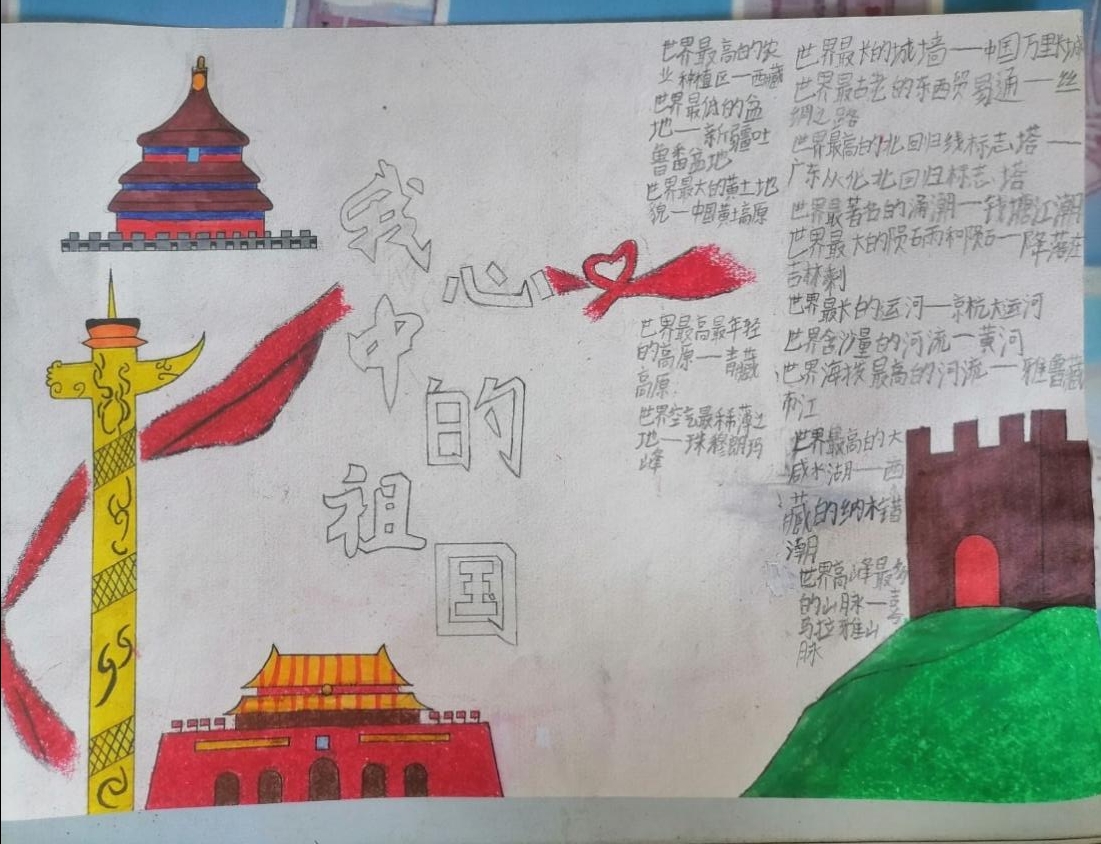 我
心
中
的
祖
国
世界最高的农
业种植区—西藏
世界最低的盆
地—新疆吐
鲁番盆地
世界最大的黄土地
貌—中国黄土高原
世界最高最年轻
的高原—青藏
高原.
世界空气最稀薄之
地—珠穆朗玛
峰
世界最长的城墙—中国万里长城
世界最古老的东西贸易通—丝
绸之路
世界最高的北回归线标志塔—
广东从化北回归标志塔
世界最著名的涌潮—钱塘江潮
世界最大的陨石雨和陨石—降落在
吉林
世界最长的运河—京杭大运河
世界含沙量的河流—黄河
世界海拔最高的河流—雅鲁藏
布江
世界最高的大
咸水湖—西
藏的纳木错
潮
世界高峰最多
的山脉—喜
马拉雅山
脉